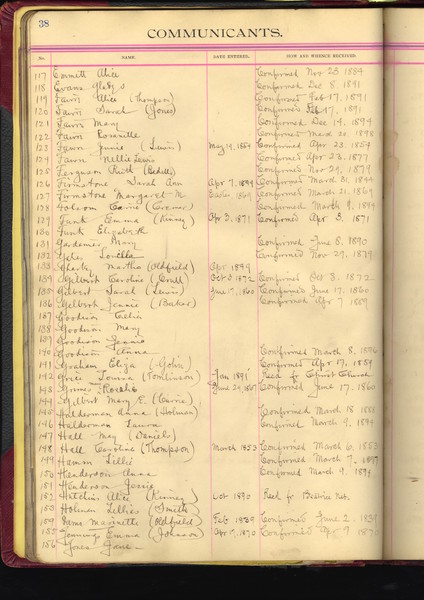 38
COMMUNICANTS.
No. NAME. DATE ENTERED. HOW AND WHENCE RECEIVED.
117 Emmett Alice Confirmed Nov 23 1884
118 Evans Gladys Confirmed Dec 8, 1891
119 Fawn Alice (Thompson) Confirmed Feb 17, 1891
120 Fawn Sarah (Jones) Confirmed Feb 17, 1891
121 Fawn Mary Confirmed Dec 14, 1894
122 Fawn Confirmed 1898
123 Fawn Jennie (Lewis) May 14, 1854 Confirmed Apr 23, 1854
124 Fawn Nellie Lewis Confirmed Apr 23, 1877
125 Ferguson Ruth Confirmed Nov 29, 1877
126 Firmstone Sarah Ann Apr 7, 1844 Confirmed March 31, 1844
127 Firmstone Margaret M. Easter 1869 Confirmed March 21, 1869
128 Folsom Carrie Confirmed March 9, 1894
129 Funk Emma (Kinney) Apr 3, 1871 Confirmed Apr 3, 1871
130 Funk Elizabeth
131 Gardener Mary Confirmed June 8, 1890
132 Gates Louella Confirmed Nov 29, 1879
133 Martha (Oldfield) 1899
134 Gilbert Caroline (Crull) Oct 3 1872 Confirmed Oct 3, 1872
135 Gilbert Sarah (Lewis) June 17, 1860 Confirmed June 17, 1860
136 Gilbert Jennie (Baker) Confirmed Apr 7 1889
137 Goodwin Celia
138 Goodwin Mary
139 Goodwin Jennie
140 Goodwin Anna Confirmed March 8, 1896
141 Graham Eliza Confirmed Apr 17, 1858
142 Louisa (Tomlinson) Jan 1891 Recd fr Christ Church
143 Grimes Rosalie June 24, 1860 Confirmed June 17, 1860
144 Gilbert Mary E. (Carrie)
145 Haldeman Anna (Holman) Confirmed March 18 1888
146 Haldeman Laura Confirmed March 9, 1894
147 Hall May (Daniels)
148 Hall Caroline (Thompson) March 1853 Confirmed March 1853
149 Hamm Lillie Confirmed March 7, 1897
150 Henderson Anna Confirmed March 9, 1894
151 Henderson Jessie
152 Hutchins Alice (Kinney) Oct 1890 Recd fr Beatrice Neb.
153 Holman Lillie (Smith)
154 Marinette (Oldfield) Feb 1839 Confirmed June 2, 1839
155 Jennings Emma (Johnson) Apr 17, 1870 Confirmed Apr 9 1870
156 Jones Jane